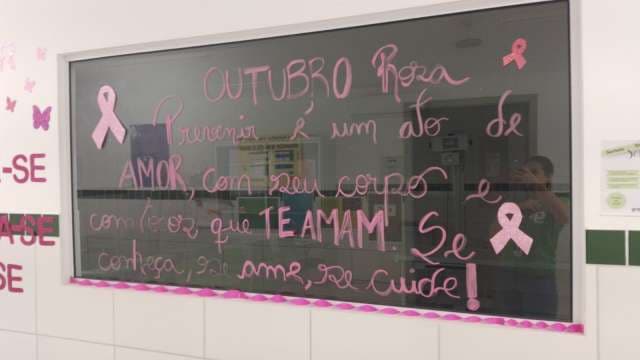 OUTUBRO Rosa
Prevenir é um ato de
AMOR, com seu corpo e
com todos que TE AMAM. Se
conheça, se ame, se cuide!
-SE
A-SE
SE